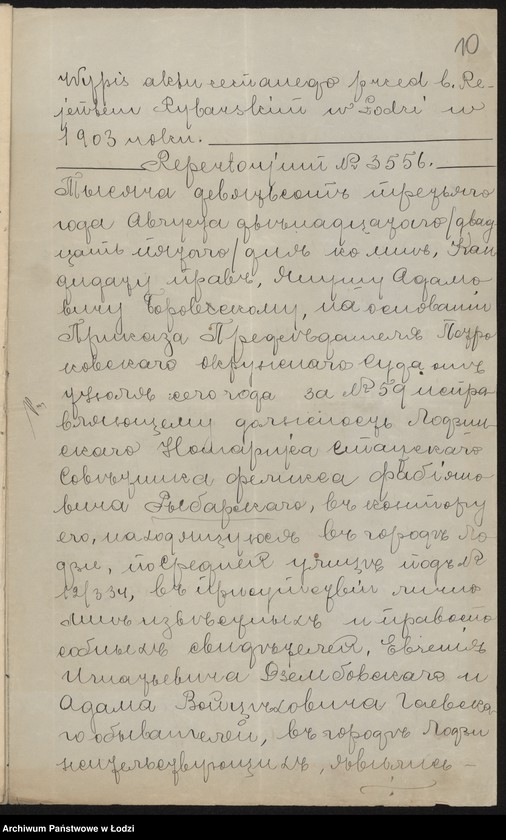 10
Wypis aktu zeznanego przed b. Re-
jentem Rybarskim w Łodzi w
1903 roku.
Repertorjum № 3556.
Тысяча девятьсотъ третьяго
года Августа двенадцатаго/двад
цать пятаго/дня ко мнѣ, Кан
дидату правъ, Янушу Адамо
вичу Боровскому, на основаніи
Приказа Предсѣдателя Петро
ковскаго окружнаго Суда отъ
Іюля сего года за № 59 испра
вляющему должность Лодзин
скаго Нотаріуса Статскаго
Совѣтника Феликса Фабіяно
вича Рыбарскаго, въ контору
его, находящуюся въ городѣ Ло
дзи, по Средней улицѣ подъ №
12/334, въ присутствіи лично
мнѣ извѣстныхъ и правоспо
собныхъ свидѣтелей, Евгенія
Игнатьевича Дзембовскаго и
Адама Войцѣховича Гаевска
го обывателей, въ городѣ Лодзи
жительствующихъ, явились –
Archiwum Państwowe w Łodzi